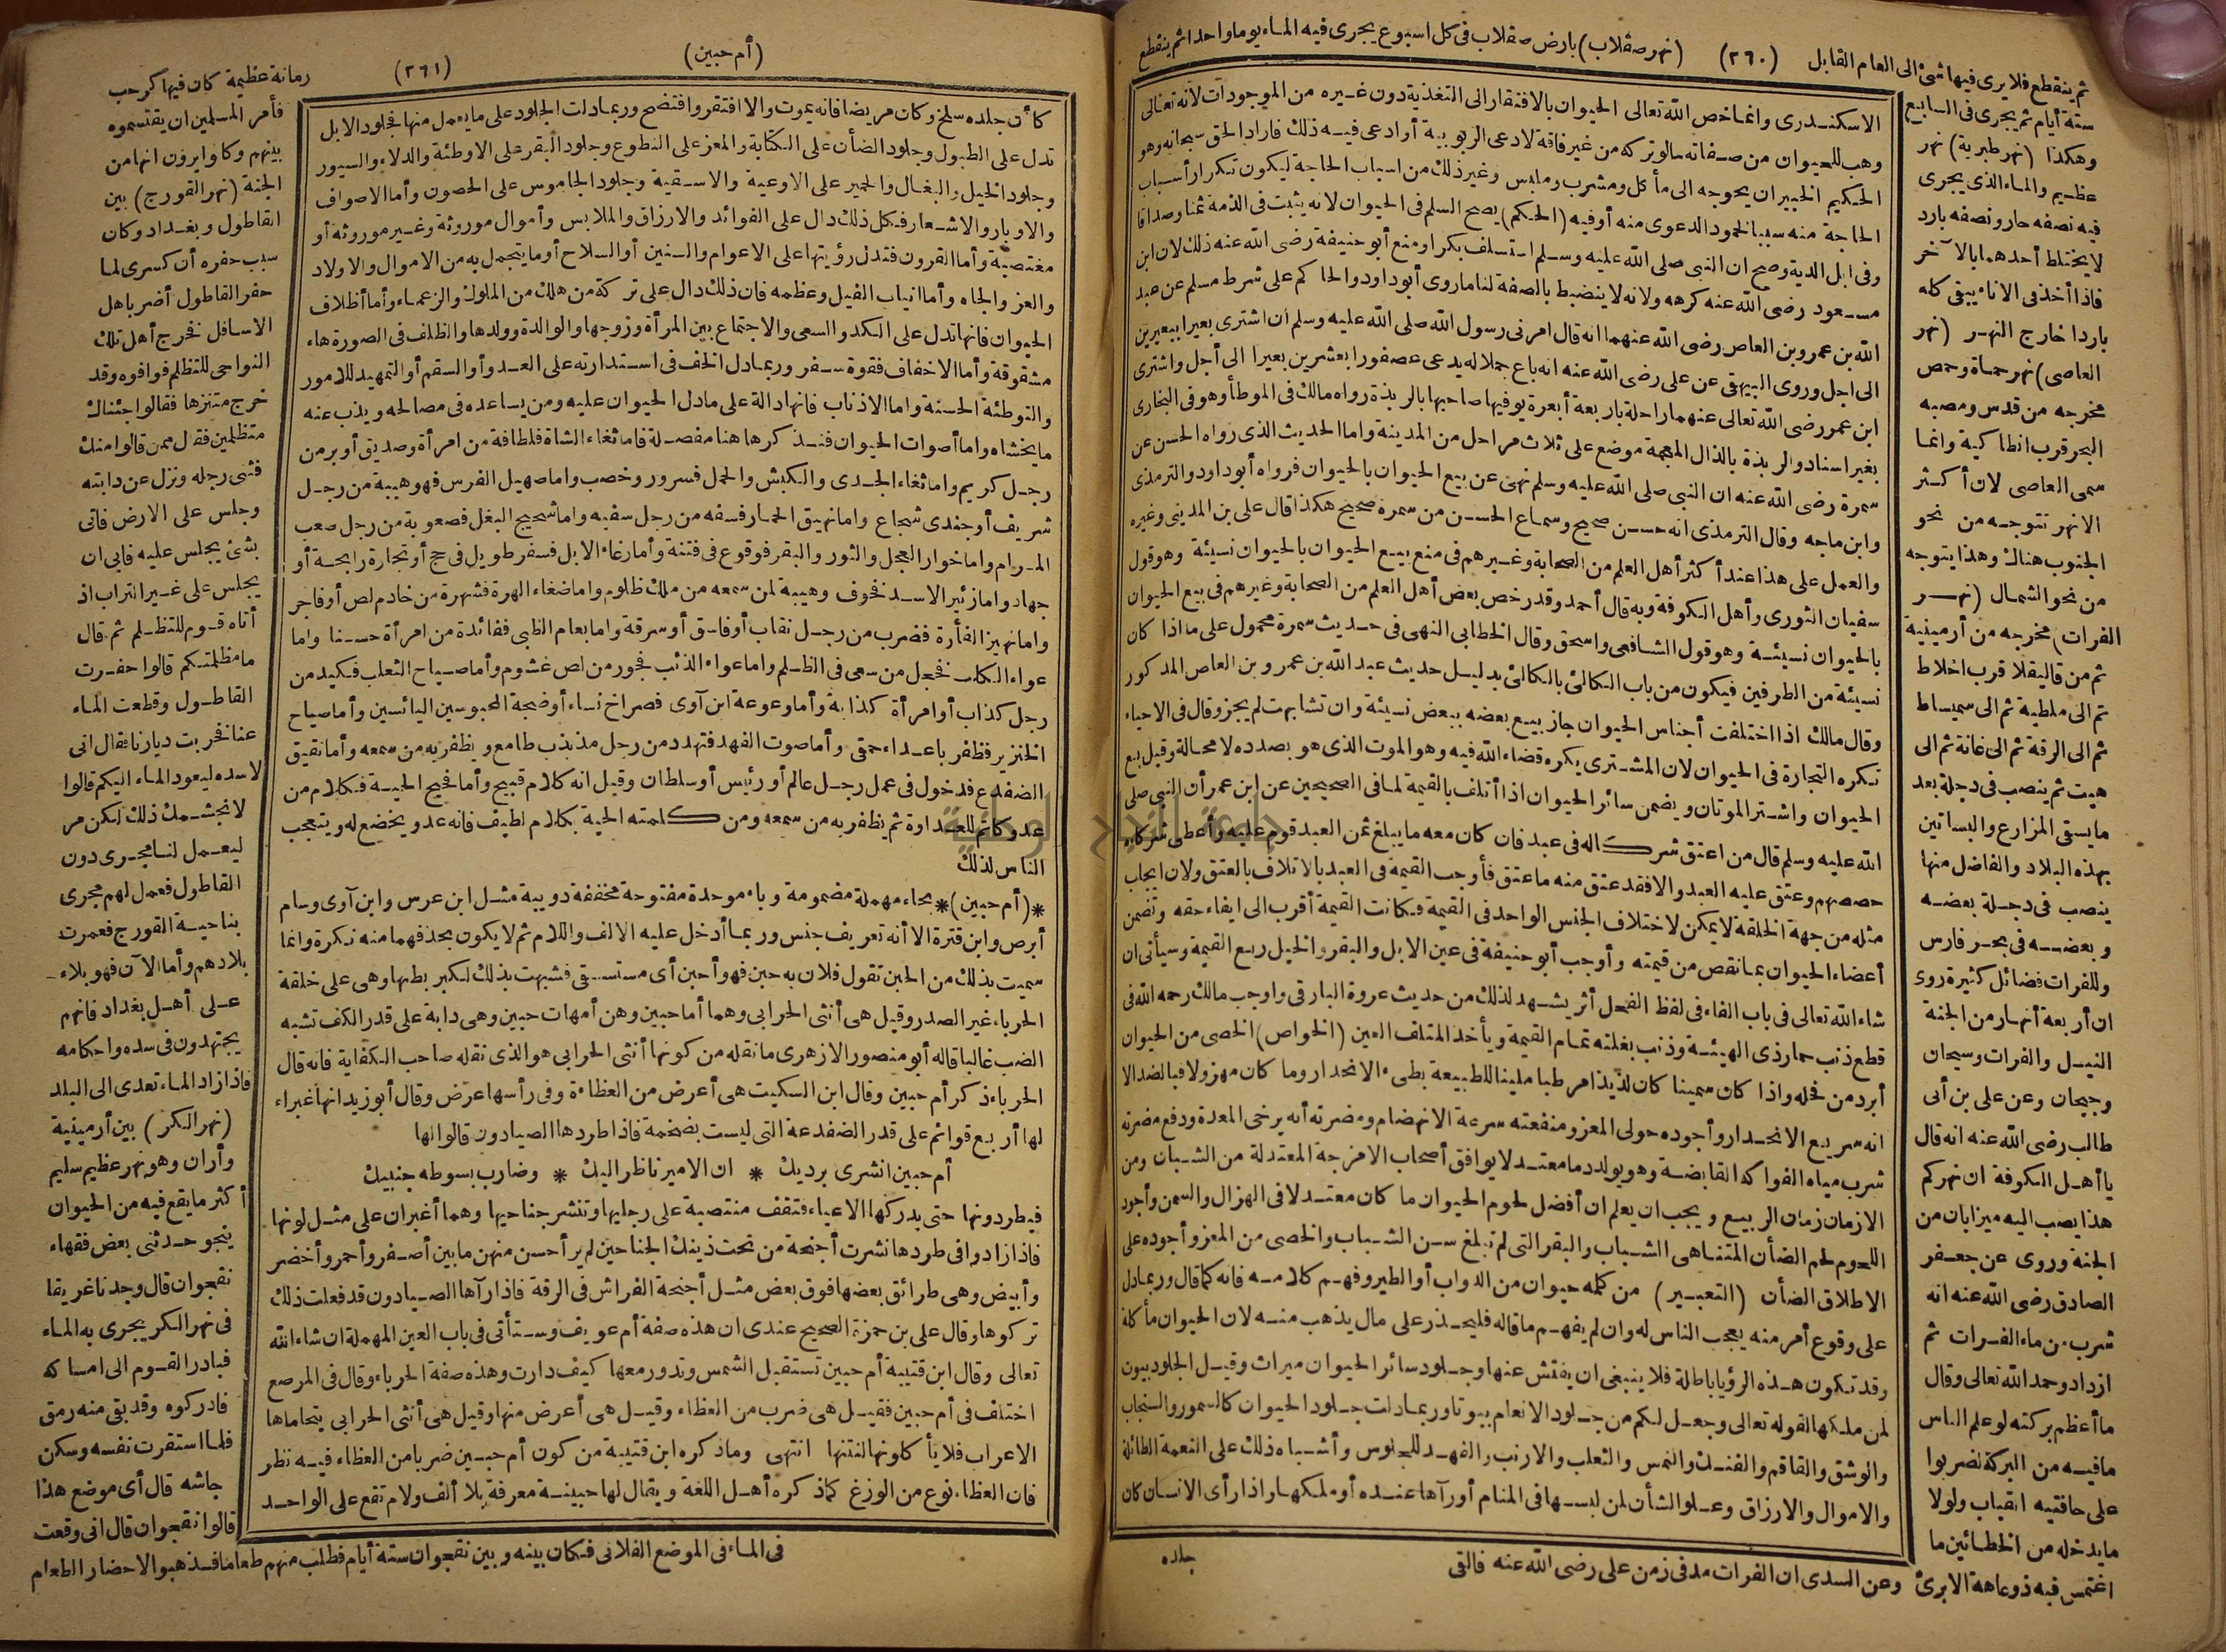 ثم ينقطع فلا يرى فيها شئ الى العام القابل (٢٦٠) (نهر صقلاب) بارض صقلاب فى كل اسبوع يجرى فيه الماء يوما واحدا ثم ينقطع
ستة أيام ثم يجرى فى السابع
وهكذا (نهر طبرية) نهر
عظيم والماء الذى يجرى
فيه نصفه حار ونصفه بارد
لا يختلط أحدهما بالآخر
فاذا أخذ فى الاناء يبقى كله
باردا خارج النهر (نهر
العاصى) نهر حماة وحمص
مخرجه من قدس ومصبه
البحر قرب انطاكية وانما
سمى العاصى لان أكثر
الانهر تتوجه من نحو
الجنوب هناك وهذا يتوجه
من نحو الشمال (نهر
الفرات) مخرجه من أرمينية
ثم من قاليقلا قرب اخلاط
ثم الى ملطية ثم الى سميساط
ثم الى الرقة ثم الى غانة ثم الى
هيت ثم ينصب فى دجلة بعد
ما يسقى المزارع والبساتين
بهذه البلاد والفاضل منها
ينصب فى دجلة بعضه
وبعضه فى بحر فارس
وللفرات فضائل كثيرة روى
ان أربعة أنهار من الجنة
النيل والفرات وسيحان
وجيحان وعن على بن أبى
طالب رضى الله عنه انه قال
يا أهل الكوفة ان نهركم
هذا يصب اليه ميزابان من
الجنة وروى عن جعفر
الصادق رضى الله عنه انه
شرب من ماء الفرات ثم
ازداد وحمد الله تعالى وقال
ما أعظم بركته لو علم الناس
ما فيه من البركة لضربوا
على حافتيه القباب ولولا
ما يدخله من الخطائين ما
اغتمس فيه ذو عاهة الا برئ وعن السدى ان الفرات مد فى زمن على رضى الله عنه فالقى
الاسكندرى وانما خص الله تعالى الحيوان بالافتقار الى التغذية دون غيره من الموجودات لانه تعالى
وهب للحيوان من صفاته ما لو تركه من غير فاقة لادعى الربوبية أو ادعى فيه ذلك فاراد الحق سبحانه وهو
الحكيم الخبير ان يحوجه الى مأكل ومشرب وملبس وغير ذلك من اسباب الحاجة ليكون تكرار أسباب
الحاجة منه سببا لخمود الدعوى منه أو فيه (الحكم) يصح السلم فى الحيوان لانه يثبت فى الذمة ثمنا وصداقا
وفى ابل الدية وصح ان النبى صلى الله عليه وسلم استسلف بكرا ومنع أبو حنيفة رضى الله عنه ذلك لان ابن
مسعود رضى الله عنه كرهه ولانه لا ينضبط بالصفة لنا ما روى أبو داود والحاكم على شرط مسلم عن عبد
الله بن عمرو بن العاص رضى الله عنهما انه قال امرنى رسول الله صلى الله عليه وسلم ان اشترى بعيرا ببعيرين
الى اجل وروى البيهقى عن على رضى الله عنه انه باع جملا له يدعى عصفورا بعشرين بعيرا الى أجل واشترى
ابن عمر رضى الله تعالى عنهما راحلة باربعة أبعرة يوفيها صاحبها بالربذة رواه مالك فى الموطأ وهو فى البخارى
بغير اسناد والربذة بالذال المعجمة موضع على ثلاث مراحل من المدينة واما الحديث الذى رواه الحسن عن
سمرة رضى الله عنه ان النبى صلى الله عليه وسلم نهى عن بيع الحيوان بالحيوان فرواه أبو داود والترمذى
وابن ماجه وقال الترمذى انه حسن صحيح وسماع الحسن من سمرة صحيح هكذا قال على بن المدينى وغيره
والعمل على هذا عند أكثر أهل العلم من الصحابة وغيرهم فى منع بيع الحيوان بالحيوان نسيئة وهو قول
سفيان الثورى وأهل الكوفة وبه قال أحمد وقد رخص بعض أهل العلم من الصحابة وغيرهم فى بيع الحيوان
بالحيوان نسيئة وهو قول الشافعى واسحق وقال الخطابى النهى فى حديث سمرة محمول على ما اذا كان
نسيئة من الطرفين فيكون من باب الكالئ بالكالئ بدليل حديث عبد الله بن عمرو بن العاص المذكور
وقال مالك اذا اختلفت أجناس الحيوان جاز بيع بعضه ببعض نسيئة وان تشابهت لم يجز وقال فى الاحياء
تكره التجارة فى الحيوان لان المشترى يكره قضاء الله فيه وهو الموت الذى هو بصدده لا محالة وقيل بع
الحيوان واشتر الموتان ويضمن سائر الحيوان اذا أتلف بالقيمة لما فى الصحيحين عن ابن عمر أن النبى صلى
الله عليه وسلم قال من اعتق شركا له فى عبد فان كان معه ما يبلغ ثمن العبد قوم عليه وأعطى شركاءه
حصصهم وعتق عليه العبد والا فقد عتق منه ما عتق فأوجب القيمة فى العبد بالاتلاف بالعتق ولان ايجاب
مثله من جهة الخلقة لا يمكن لاختلاف الجنس الواحد فى القيمة فكانت القيمة أقرب الى ايفاء حقه وتضمن
أعضاء الحيوان بما نقص من قيمته وأوجب أبو حنيفة فى عين الابل والبقر والخيل ربع القيمة وسيأتى ان
شاء الله تعالى فى باب الفاء فى لفظ الفحل أثر يشهد لذلك من حديث عروة البارقى واوجب مالك رحمه الله فى
قطع ذنب حمار ذى الهيئة وذنب بغلته تمام القيمة ويأخذ المتلف العين (الخواص) الخصى من الحيوان
أبرد من فحله واذا كان سمينا كان لذيذا مرطبا ملينا للطبيعة بطىء الانحدار وما كان مهزولا فبالضد الا
انه سريع الانحدار وأجوده حولى المعز ومنفعته سرعة الانهضام ومضرته أنه يرخى المعدة ودفع مضرته
شرب مياه الفواكه القابضة وهو يولد دما معتدلا يوافق أصحاب الامزجة المعتدلة من الشبان ومن
الازمان زمان الربيع ويجب ان يعلم ان أفضل لحوم الحيوان ما كان معتدلا فى الهزال والسمن وأجود
اللحوم لحم الضأن المتناهى الشباب والبقر التى لم تبلغ سن الشباب والخصى من المعز وأجوده على
الاطلاق الضأن (التعبير) من كلمه حيوان من الدواب أو الطير وفهم كلامه فانه كما قال وربما دل
على وقوع أمر منه يعجب الناس له وان لم يفهم ما قاله فليحذر على مال يذهب منه لان الحيوان مأكلة
وقد تكون هذه الرؤيا باطلة فلا ينبغى ان يفتش عنها وجلود سائر الحيوان ميراث وقيل الجلود بيون
لمن ملكها لقوله تعالى وجعل لكم من جلود الانعام بيوتا وربما دلت جلود الحيوان كالسمور والسنجاب
والوشق والقاقم والفنك والنمس والثعلب والارنب والفهد للجلوس وأشباه ذلك على النعمة الطائلة
والاموال والارزاق وعلو الشأن لمن لبسها فى المنام أو رآها عنده أو ملكها واذا رأى الانسان كان
جلده
(أم حبين) (٢٦١) رمانة عظيمة كان فيها كر حب
كأن جلده سلخ وكان مريضا فانه يموت والا افتقر وافتضح وربما دلت الجلود على ما يعمل منها فجلود الابل
تدل على الطبول وجلود الضأن على الكتابة والمعز على النطوع وجلود البقر على الاوطئة والدلاء والسيور
وجلود الخيل والبغال والحمير على الاوعية والاسقية وجلود الجاموس على الحصون وأما الاصواف
والاوبار والاشعار فكل ذلك دال على الفوائد والارزاق والملابس وأموال موروثة وغير موروثة أو
مغتصبة وأما القرون فتدل رؤيتها على الاعوام والسنين أو السلاح أو ما يتجمل به من الاموال والاولاد
والعز والجاه وأما انياب الفيل وعظمه فان ذلك دال على تركة من هلك من الملوك والزعماء وأما أظلاف
الحيوان فانها تدل على الكد والسعى والاجتماع بين المرأة وزوجها والوالدة وولدها والظلف فى الصورة هاء
مشقوقة وأما الاخفاف فقوة سفر وربما دل الخف فى استدارته على العدو أو السقم أو التمهيد للامور
والتوطئة الحسنة واما الاذناب فانها دالة على ما دل الحيوان عليه ومن يساعده فى مصالحه ويذب عنه
ما يخشاه واما أصوات الحيوان فنذكرها هنا مفصلة فاما ثغاء الشاة فلطافة من امرأة وصديق أو بر من
رجل كريم واما ثغاء الجدى والكبش والحمل فسرور وخصب واما صهيل الفرس فهو هيبه من رجل
شريف أو جندى شجاع واما نهيق الحمار فسفه من رجل سفيه واما شحيج البغل فصعوبة من رجل صعب
المرام واما خوار العجل والثور والبقر فوقوع فى فتنة وأما رغاء الابل فسفر طويل فى حج أو تجارة رابحة أو
جهاد واما زئير الاسد فخوف وهيبة لمن سمعه من ملك ظلوم واما ضغاء الهرة فشهرة من خادم لص أو فاجر
واما نهيز الفأرة فضرب من رجل نقاب أو فاسق أو سرقة واما بغام الظبى ففائدة من امرأة حسنا واما
عواء الكلب فخجل من سعى فى الظلم واما عواء الذئب فجور من لص غشوم وأما صياح الثعلب فكيد من
رجل كذاب أو امرأة كذابة وأما وعوعة ابن آوى فصراخ نساء أو ضجة المحبوسين اليائسين وأما صياح
الخنزير فظفر باعداء حمقى وأما صوت الفهد فتهدد من رجل مذبذب طامع ويظفر به من سمعه وأما نقيق
الضفدع فدخول فى عمل رجل عالم أو رئيس أو سلطان وقيل انه كلام قبيح وأما فحيح الحية فكلام من
عدو كاتم للعداوة ثم يظفر به من سمعه ومن كلمته الحية بكلام لطيف فانه عدو يخضع له ويتعجب
الناس لذلك
*(أم حبين)* بحاء مهملة مضمومة وباء موحدة مفتوحة مخففة دويبة مثل ابن عرس وابن آوى وسام
أبرص وابن قترة الا أنه تعريف جنس وربما أدخل عليه الالف واللام ثم لا يكون بحذفهما منه نكرة وانما
سميت بذلك من الحبن تقول فلان به حبن فهو أحبن أى مستسقى فشبهت بذلك لكبر بطنها وهى على خلقة
الحرباء غير الصدر وقيل هى أنثى الحرابى وهما أما حبين وهن أمهات حبين وهى دابة على قدر الكف تشبه
الضب غالبا قاله أبو منصور الازهرى ما نقله من كونها أنثى الحرابى هو الذى نقله صاحب الكفاية فانه قال
الحرباء ذكر أم حبين وقال ابن السكيت هى أعرض من العظاءة وفى رأسها عرض وقال أبو زيد انها غبراء
لها أربع قوائم على قدر الضفدعة التى ليست بضخمة فاذا طردها الصيادون قالوا لها
أم حبين انشرى برديك * ان الامير ناظر اليك * وضارب بسوطه جنبيك
فيطردونها حتى يدركها الاعياء فتقف منتصبة على رجليها وتنشر جناحيها وهما أغبران على مثل لونها
فاذا زادوا فى طردها نشرت أجنحة من تحت ذينك الجناحين لم ير أحسن منهن ما بين أصفر وأحمر وأخضر
وأبيض وهى طرائق بعضها فوق بعض مثل أجنحة الفراش فى الرقة فاذا رآها الصيادون قد فعلت ذلك
تركوها وقال على بن حمزة الصحيح عندى ان هذه صفة أم عويف وستأتى فى باب العين المهملة ان شاء الله
تعالى وقال ابن قتيبة أم حبين تستقبل الشمس وتدور معها كيف دارت وهذه صفة الحرباء وقال فى المرصع
اختلف فى أم حبين فقيل هى ضرب من العظاء وقيل هى أعرض منها وقيل هى أنثى الحرابى يتحاماها
الاعراب فلا يأكلونها لنتنها انتهى وما ذكره ابن قتيبة من كون أم حبين ضربا من العظاء فيه نظر
فان العظاء نوع من الوزغ كما ذكره أهل اللغة ويقال لها حبينة معرفة بلا ألف ولام تقع على الواحد
فأمر المسلمين ان يقتسموه
بينهم وكانوا يرون انها من
الجنة (نهر القورج) بين
القاطول وبغداد وكان
سبب حفره أن كسرى لما
حفر القاطول أضر باهل
الاسافل فخرج أهل تلك
النواحى للتظلم فوافوه وقد
خرج متنزها فقالوا جئناك
متظلمين فقال ممن قالوا منك
فثنى رجله ونزل عن دابته
وجلس على الارض فاتى
بشئ يجلس عليه فابى ان
يجلس على غير التراب اذ
أتاه قوم للتظلم ثم قال
ما مظلمتكم قالوا حفرت
القاطول وقطعت الماء
عنا فخربت ديارنا فقال انى
لاسده ليعود الماء اليكم قالوا
لا نجشمك ذلك لكن مر
ليعمل لنا مجرى دون
القاطول فعمل لهم مجرى
بناحية القورج فعمرت
بلادهم وأما الآن فهو بلاء
على أهل بغداد فانهم
يجتهدون فى سده واحكامه
فاذا زاد الماء تعدى الى البلد
(نهر الكر) بين أرمينية
وأران وهو نهر عظيم سليم
أكثر ما يقع فيه من الحيوان
ينجو حدثنى بعض فقهاء
نقجوان قال وجدنا غريقا
فى نهر الكر يجرى به الماء
فبادر القوم الى امساكه
فادركوه وقد بقى منه رمق
فلما استقرت نفسه وسكن
جاشه قال أى موضع هذا
قالوا نقجوان قال انى وقعت
فى الماء فى الموضع الفلانى فكان بينه وبين نقجوان ستة أيام فطلب منهم طعاما فذهبوا لاحضار الطعام